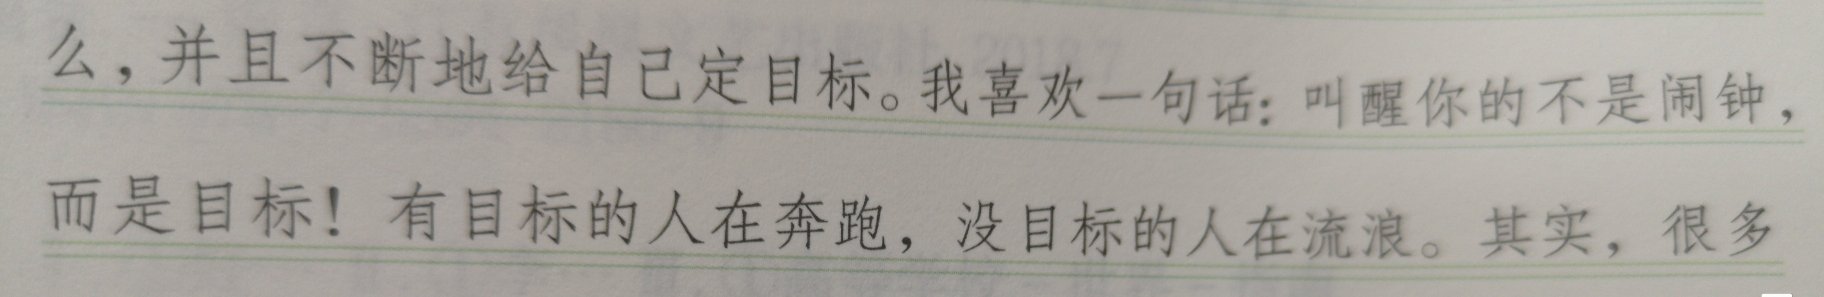 么，并且不断地给自己定目标。我喜欢一句话：叫醒你的不是闹钟，
而是目标！有目标的人在奔跑，没目标的人在流浪。其实，很多